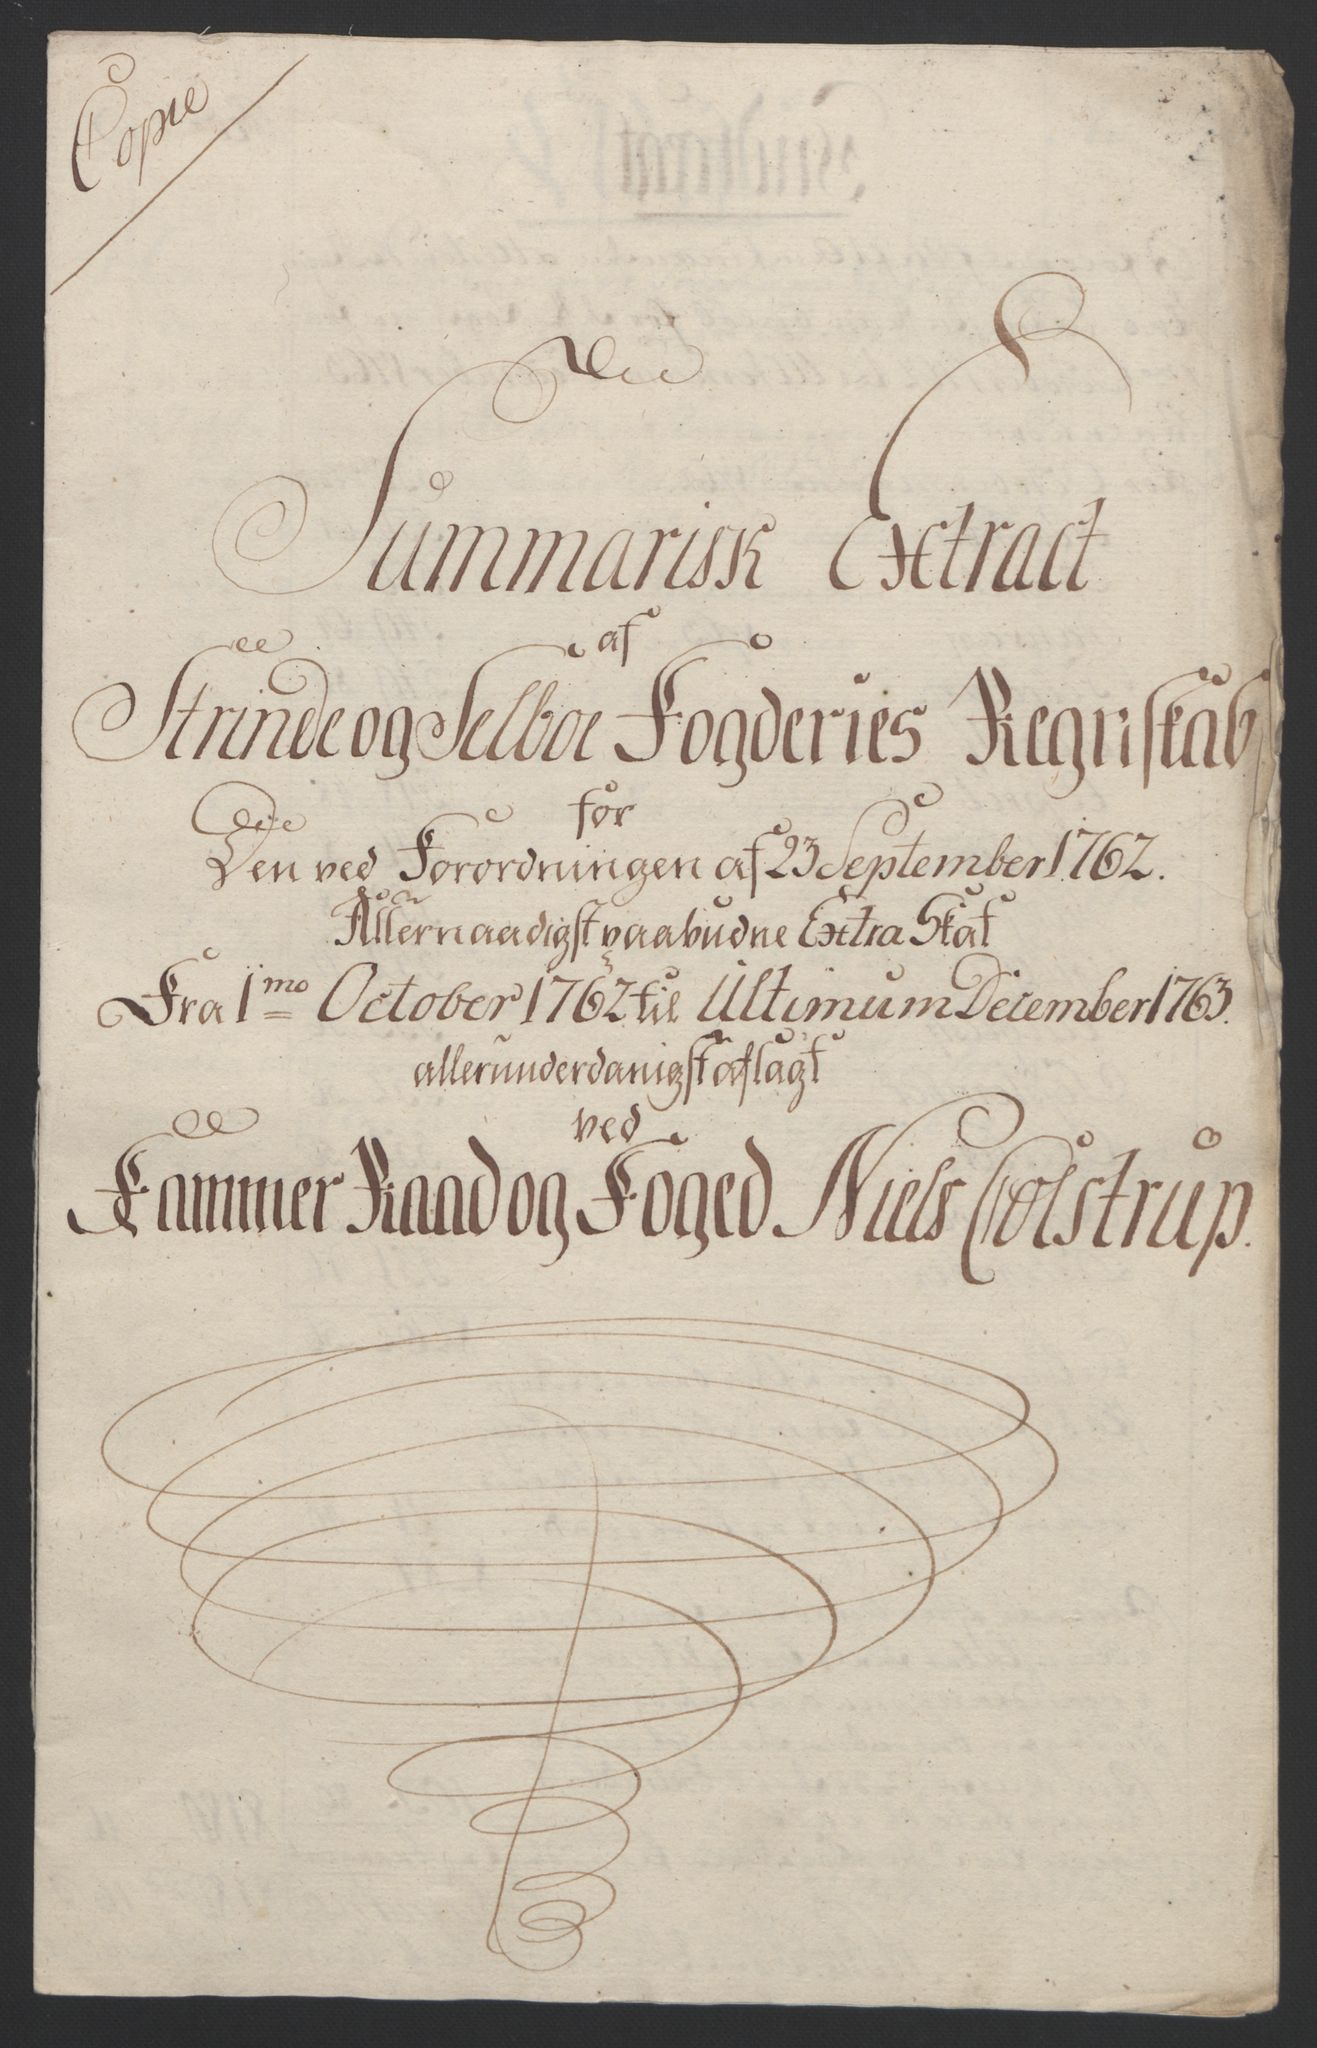 Copie
Summarisk Extract
af
Strinde og Selboe Fogderies Regnskab
for
Den ved Forordningen af 23 September 1762.
Allernaadigst paabudne Extra Skat
Fra 1mo October 1762 til Ultimum December 1763.
allerunderdanigst aflagt
ved
Kammer Raad og Foged Niels Colstrup.